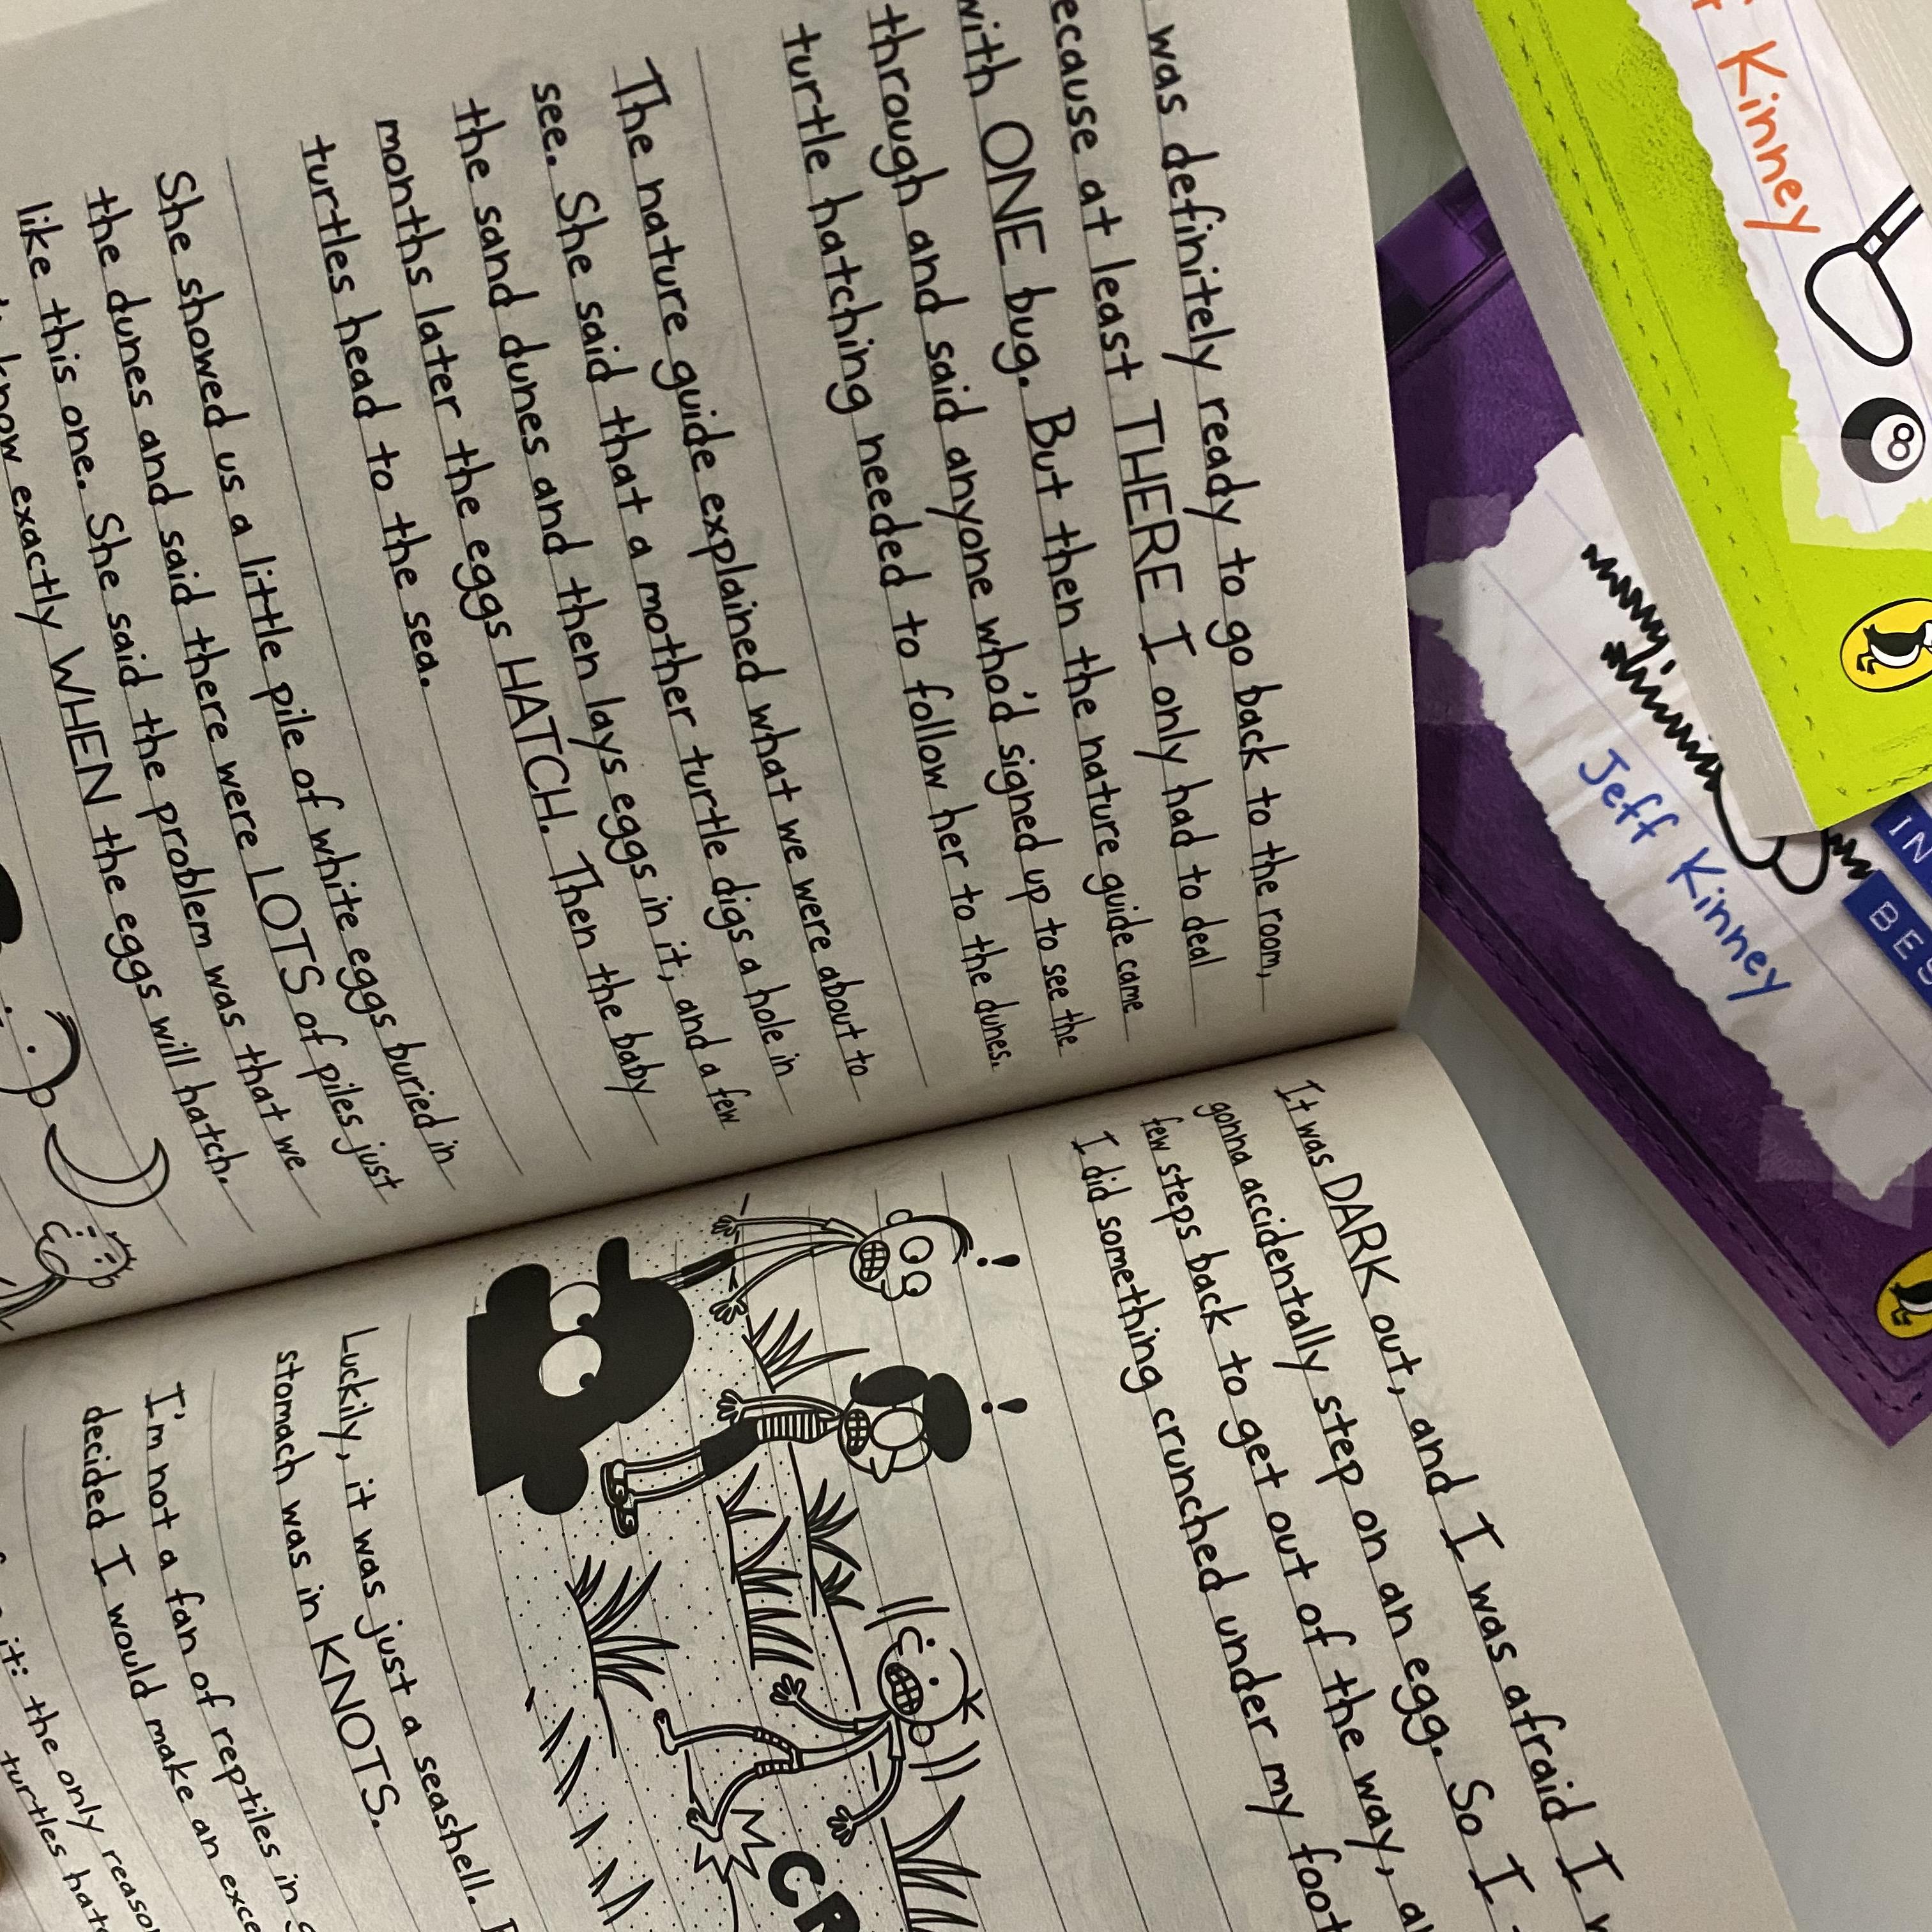 was definitely ready to go back to the room,
ecause at least THERE I only had to deal
with ONE bug. But then the nature guide came
through and said anyone who'd signed up to see the
turtle hatching needed to follow her to the dunes.
The nature guide explained what we were about to
see. She said that a mother turtle digs a hole in
the sand dunes and then lays eggs in it, and a few
months later the eggs HATCH. Then the baby
turtles head to the sea.
She showed us a little pile of white eggs buried in
the dunes and said there were LOTS of piles just
like this one. She said the problem was that we
know exactly WHEN the eggs will hatch.
It was DARK out, and I was afraid I
gonna accidentally step on an egg. So I
few steps back to get out of the way,
I did something crunched under my foot
!
!
CR
Luckily, it was just a seashell.
stomach was in KNOTS.
I'm not a fan of reptiles in
decided I would make an exce
it: the only reaso
turtles hatc
Kinney
8
Jeff Kinney
IN
BES